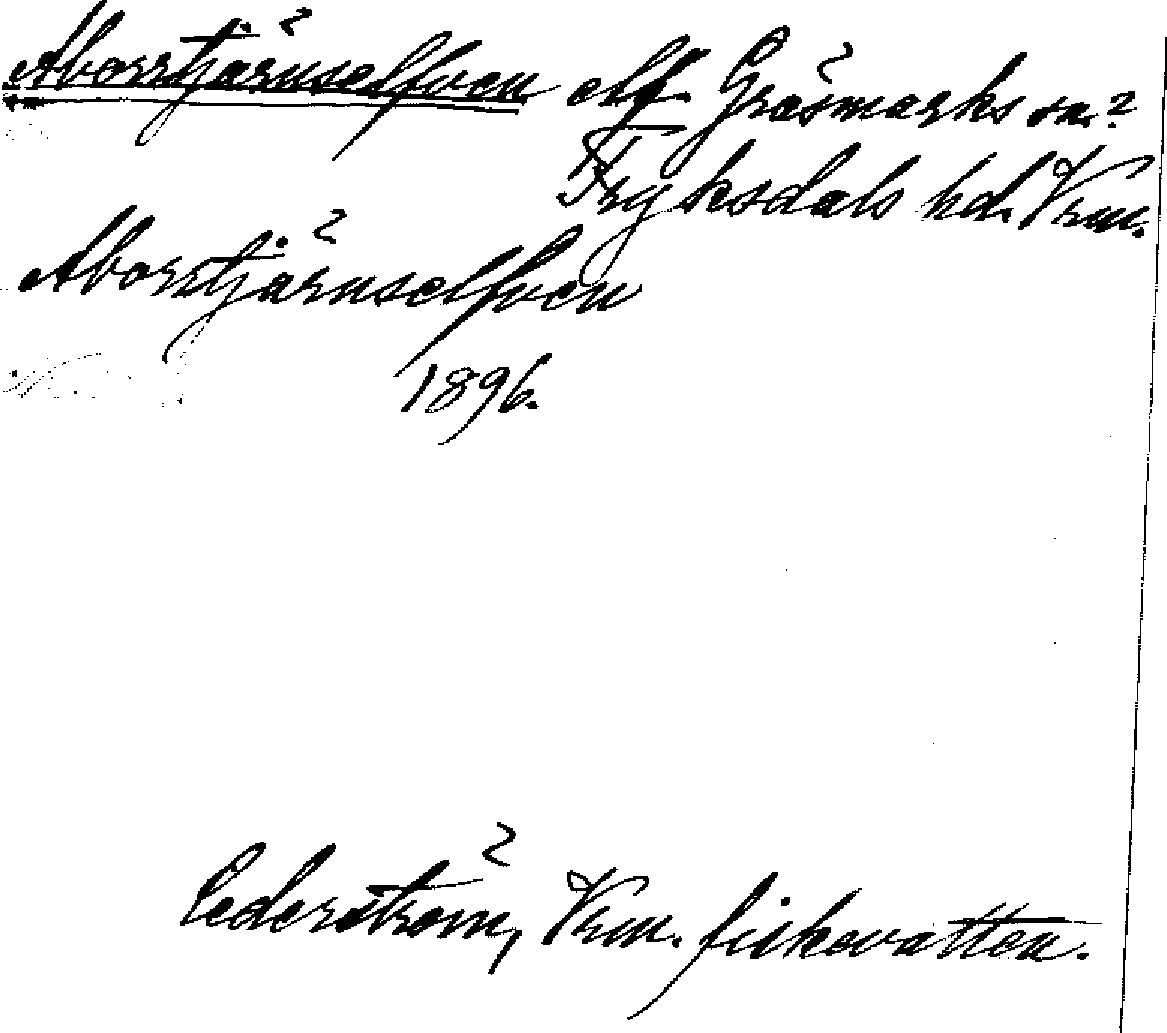 Aborrtjärnselfven elf Gräsmarks sn.?
Fryksdals hd. Vrm.
Aborrtjärnselfven
1896.
Cederström, Vrm. fiskevatten.